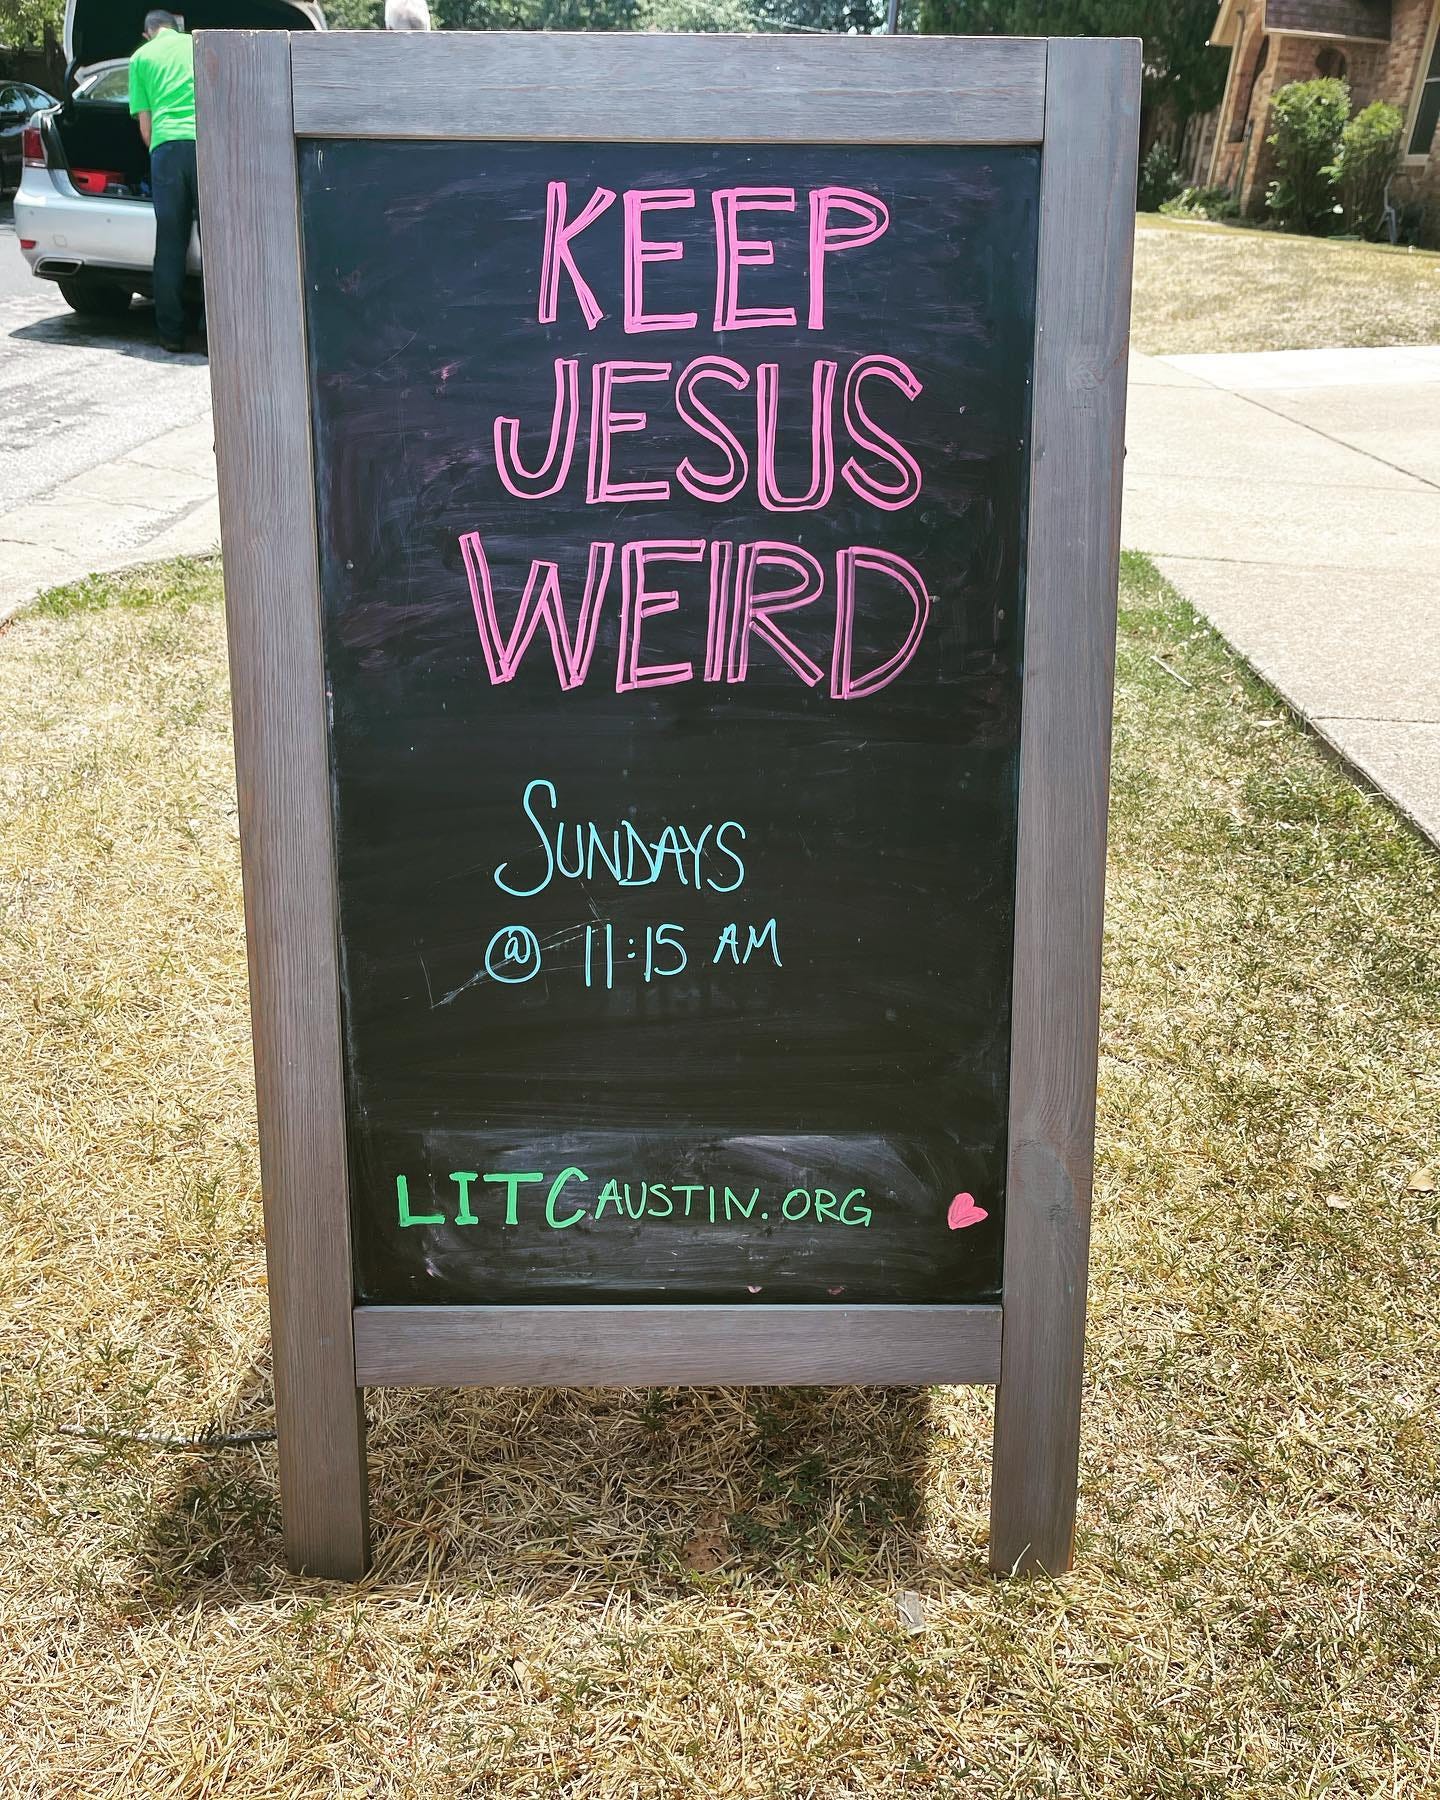 KEEP
JESUS
WEIRD
SUNDAYS
@ 11:15 AM
LITCAUSTIN.ORG